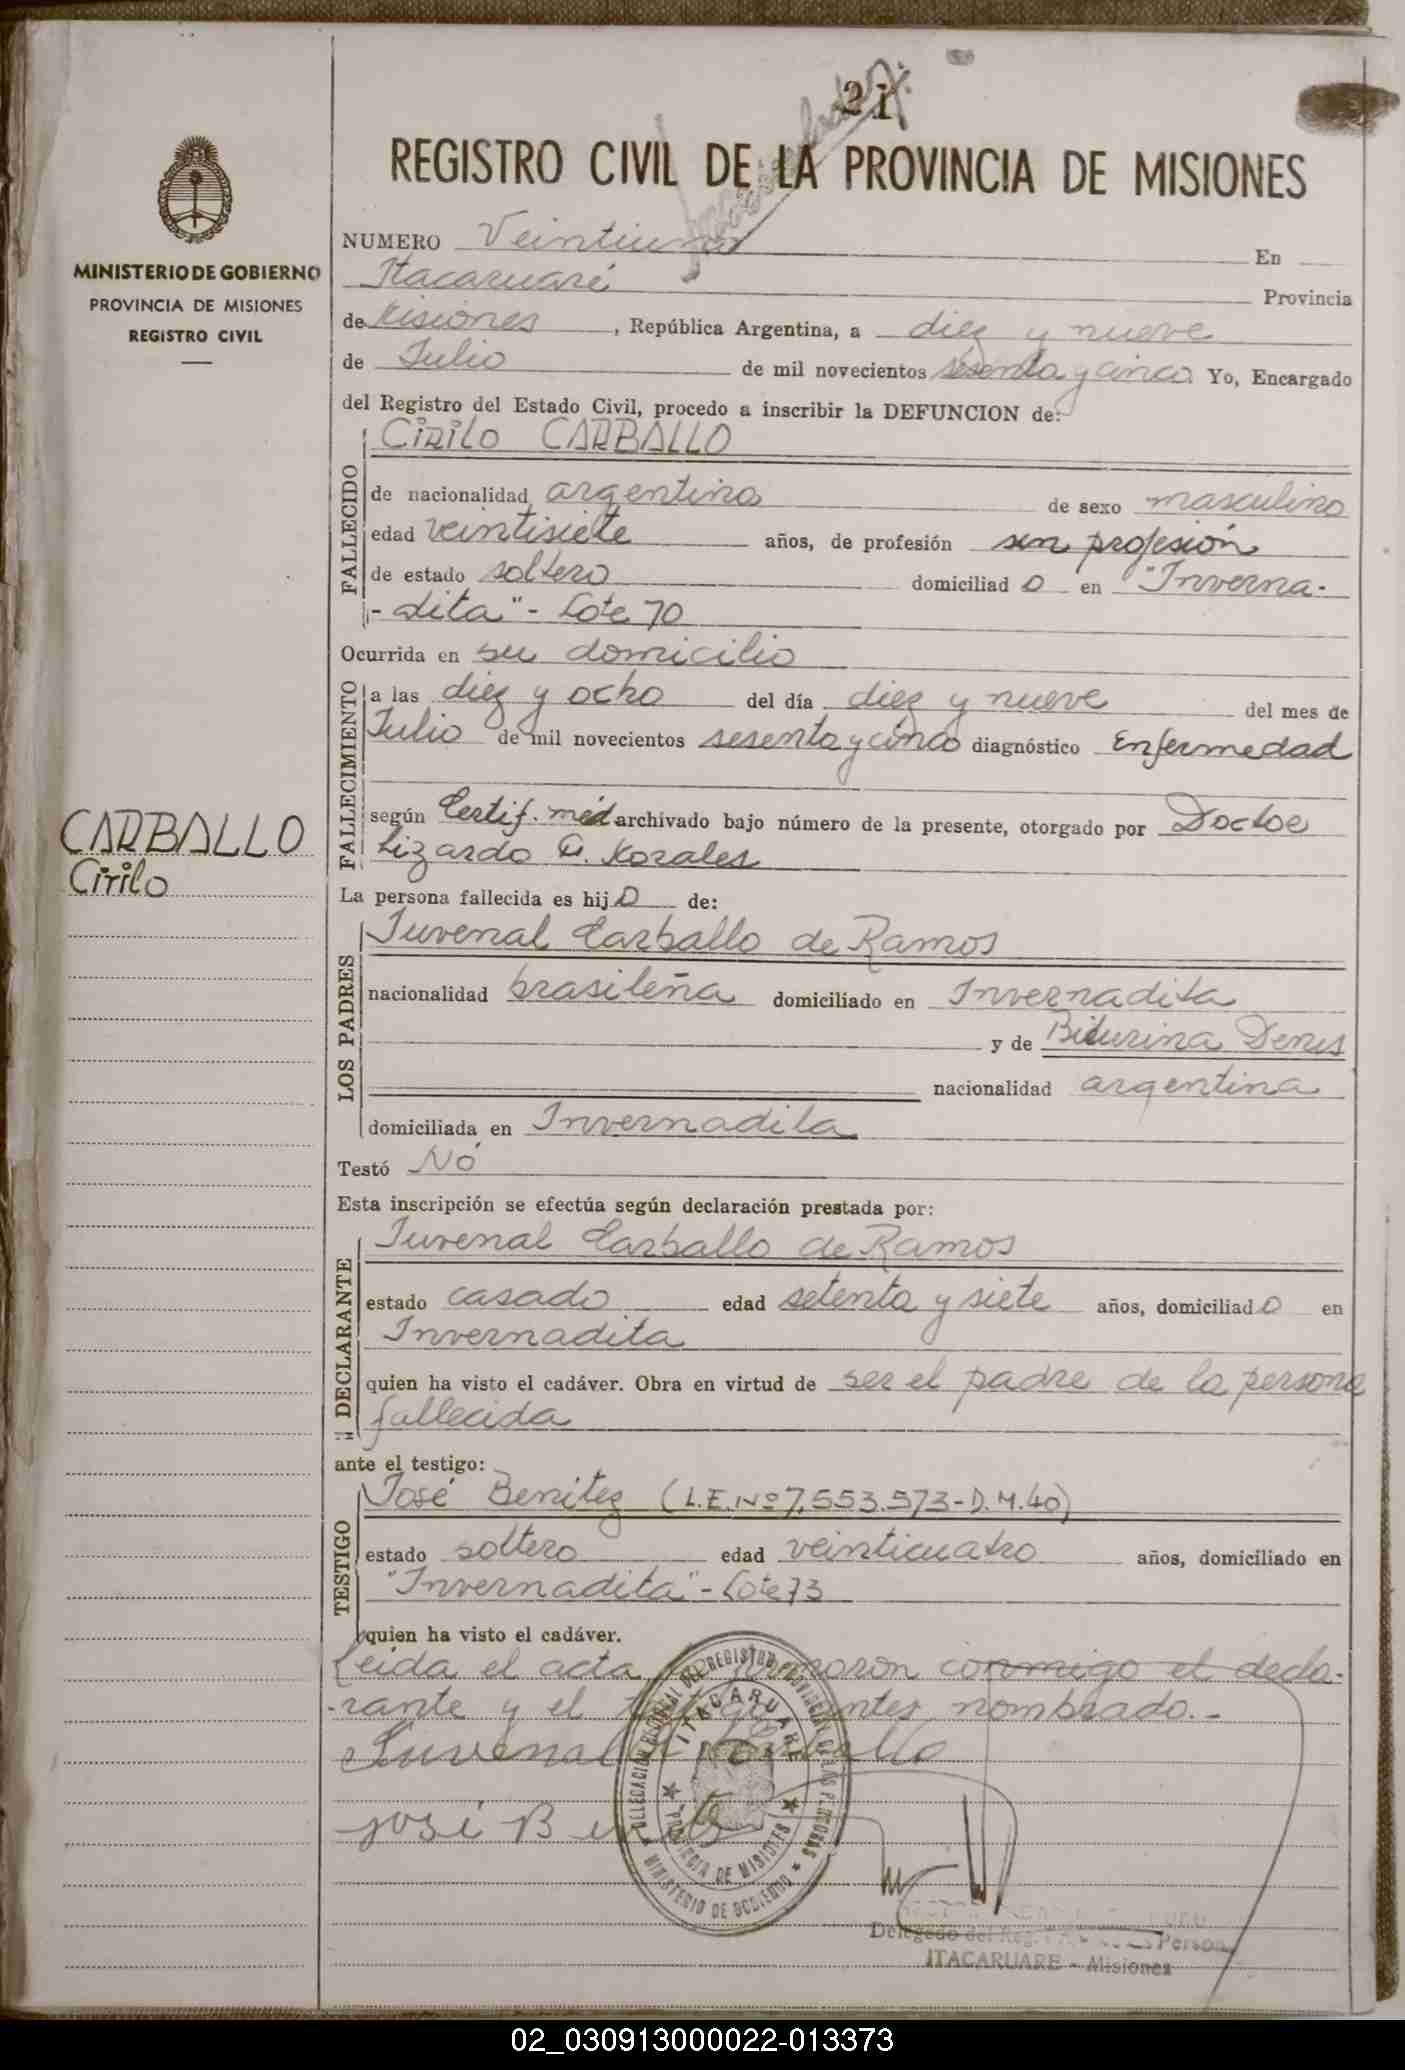 21
REGISTRO CIVIL DE LA PROVINCIA DE MISIONES
MINISTERIO DE GOBIERNO
PROVINCIA DE MISIONES
REGISTRO CIVIL
NUMERO Veintiuno En
Itacaruaré Provincia
de Misiones, República Argentina, a diez y nueve
de Julio de mil novecientos sesenta y cinco. Yo, Encargado
del Registro del Estado Civil, procedo a inscribir la DEFUNCION de:
FALLECIDO
Cirilo CARBALLO
de nacionalidad argentina de sexo masculino
edad veintisiete años, de profesión sin profesión
de estado soltero domiciliad o en "Inverna-
-dita" - Lote 70
Ocurrida en su domicilio
FALLECIMIENTO
a las diez y ocho del día diez y nueve del mes de
Julio de mil novecientos sesenta y cinco diagnóstico Enfermedad
según Certif. méd archivado bajo número de la presente, otorgado por Doctor
Lizardo Morales
CARBALLO
Cirilo
La persona fallecida es hijo de:
LOS PADRES
Juvenal Carballo de Ramos
nacionalidad brasileña domiciliado en Invernadita
y de Denis
nacionalidad argentina
domiciliada en Invernadita
Testó No
Esta inscripción se efectúa según declaración prestada por:
DECLARANTE
Juvenal Carballo de Ramos
estado casado edad setenta y siete años, domiciliado en
Invernadita
quien ha visto el cadáver. Obra en virtud de ser el padre de la persona
fallecida
ante el testigo:
TESTIGO
José Benitez (L.E.Nº 7.553.573-D.M.40)
estado soltero edad veinticuatro años, domiciliado en
"Invernadita" - Lote 73
quien ha visto el cadáver.
Leida el acta la firmaron conmigo el decla-
-rante y el testigo antes nombrado.-
Juvenal Carballo
José Benitez
DELEGACION DEL REGISTRO PROVINCIAL DE LAS PERSONAS
ITACARUARE
PROVINCIA DE MISIONES
MINISTERIO DE GOBIERNO
Delegado del Reg. Person
ITACARUARE - Misiones
02_030913000022-013373